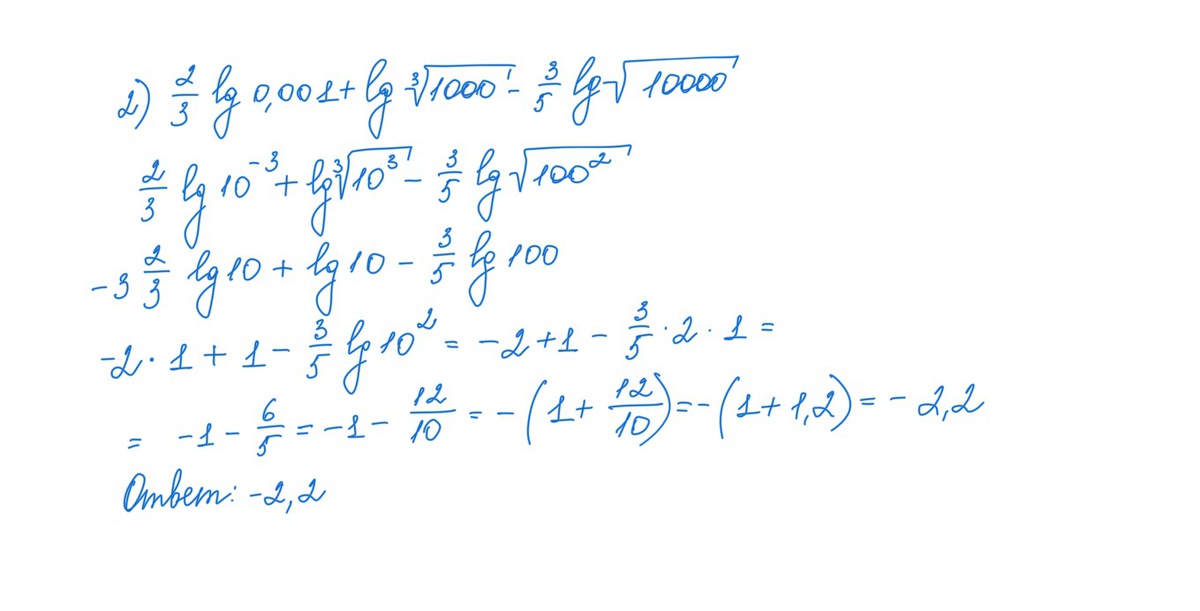 2) 2/3 lg 0,001 + lg ∛1000 - 3/5 lg √10000
2/3 lg 10⁻³ + lg ∛10³ - 3/5 lg √100²
-3 2/3 lg 10 + lg 10 - 3/5 lg 100
-2 · 1 + 1 - 3/5 lg 10² = -2 + 1 - 3/5 · 2 · 1 =
= -1 - 6/5 = -1 - 12/10 = -(1 + 12/10) = -(1 + 1,2) = -2,2
Ответ: -2,2